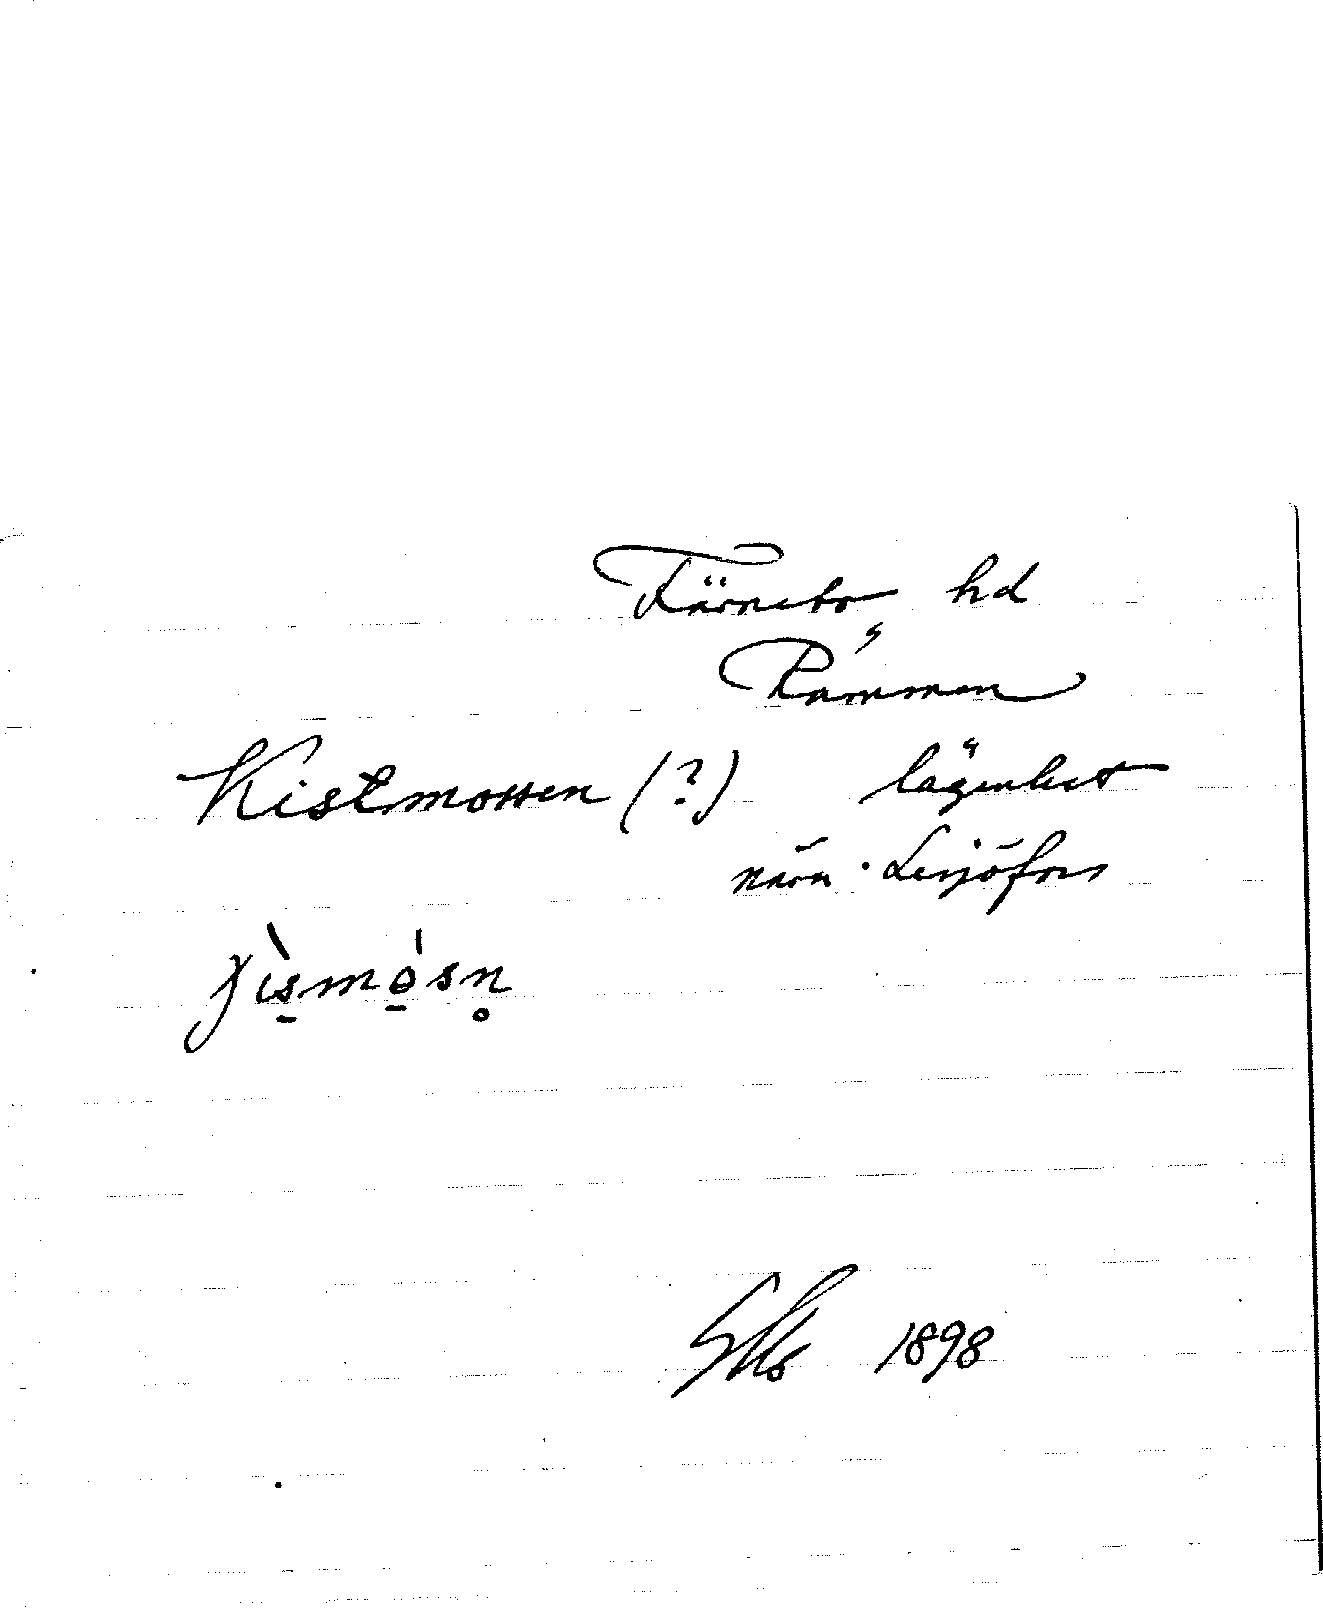 Färnebo hd
Rämmen
Kistmossen (?) lägenhet
nära Lesjöfors
1898